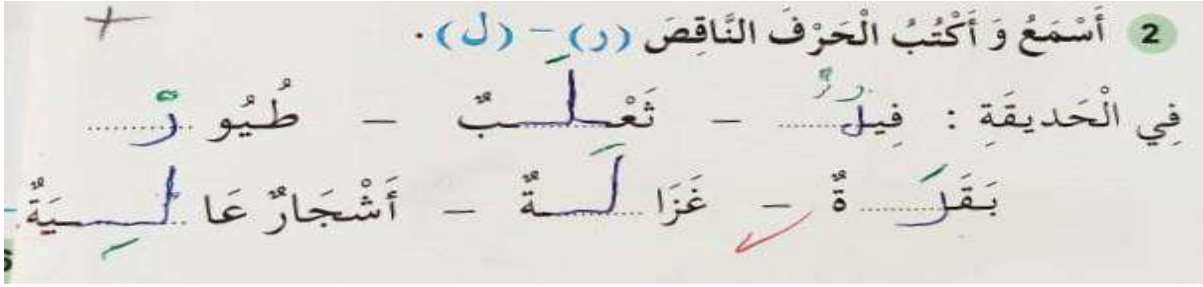 2 أَسْمَعُ وَ أَكْتُبُ الْحَرْفَ النَّاقِصَ (ر) – (ل) .
فِي الْحَديقَةِ : فيل – ثَعْلَبٌ – طُيُورٌ
بَقَرَةٌ – غَزَالَةٌ – أَشْجَارٌ عَالِيَةٌ